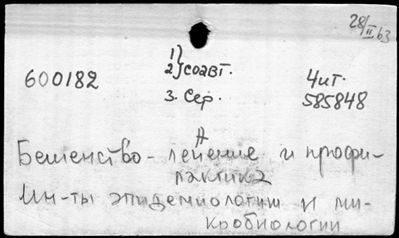 28/II 63
1)
2) соавт.
600182
4ит.
3. Сер.
585848
А
Бешенство - лечение и профи-
лактика
Ин-ты эпидемиологии и ми-
кробиологии